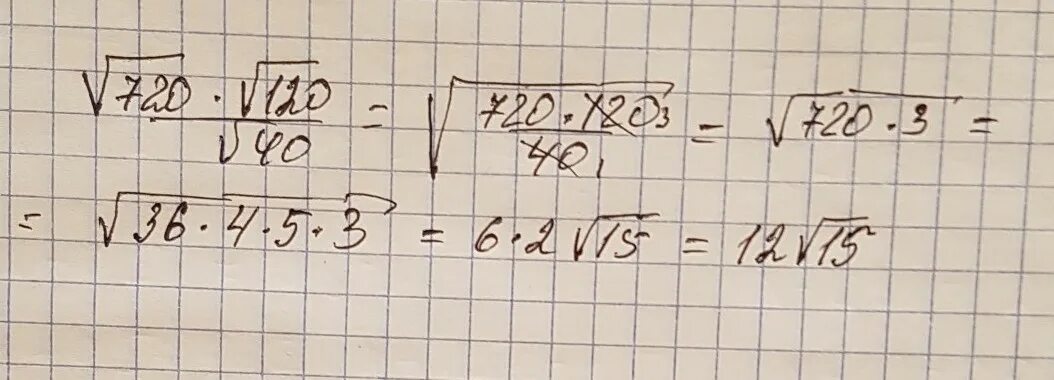 √720 · √120 / √40 = √(720 · 120 3 / 40 1) = √(720 · 3) =
= √(36 · 4 · 5 · 3) = 6 · 2 √15 = 12 √15